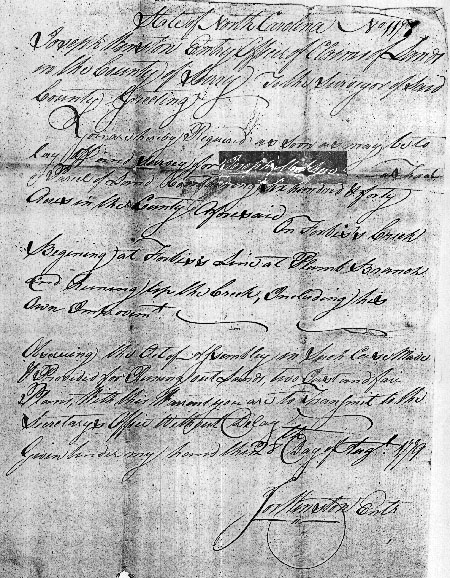 State of North Carolina No 1179
Joseph Winston Entry Officer of Claims of Lands
in the County of Surry To the Surveyor of said
County Greeting
You are hereby Required as soon as may be to
lay off and Survey for a Tract
or Parcel of Land Containing hundred & forty
Acres in the County Aforesaid
On Forbis's Creek
Begining at Forbis's Line at Plumb Branch
and Runing up the Creek, Including his
Own Improvemt
Observing the Act of Assembley in Such Case Made
& Provided for Runing out Lands two Just and fair
Plans With this Warrant you are to transmit to the
Secretarys Office Without Delay
Given Under my hand this 28th Day of Augt. 1779
Jos Winston Entr